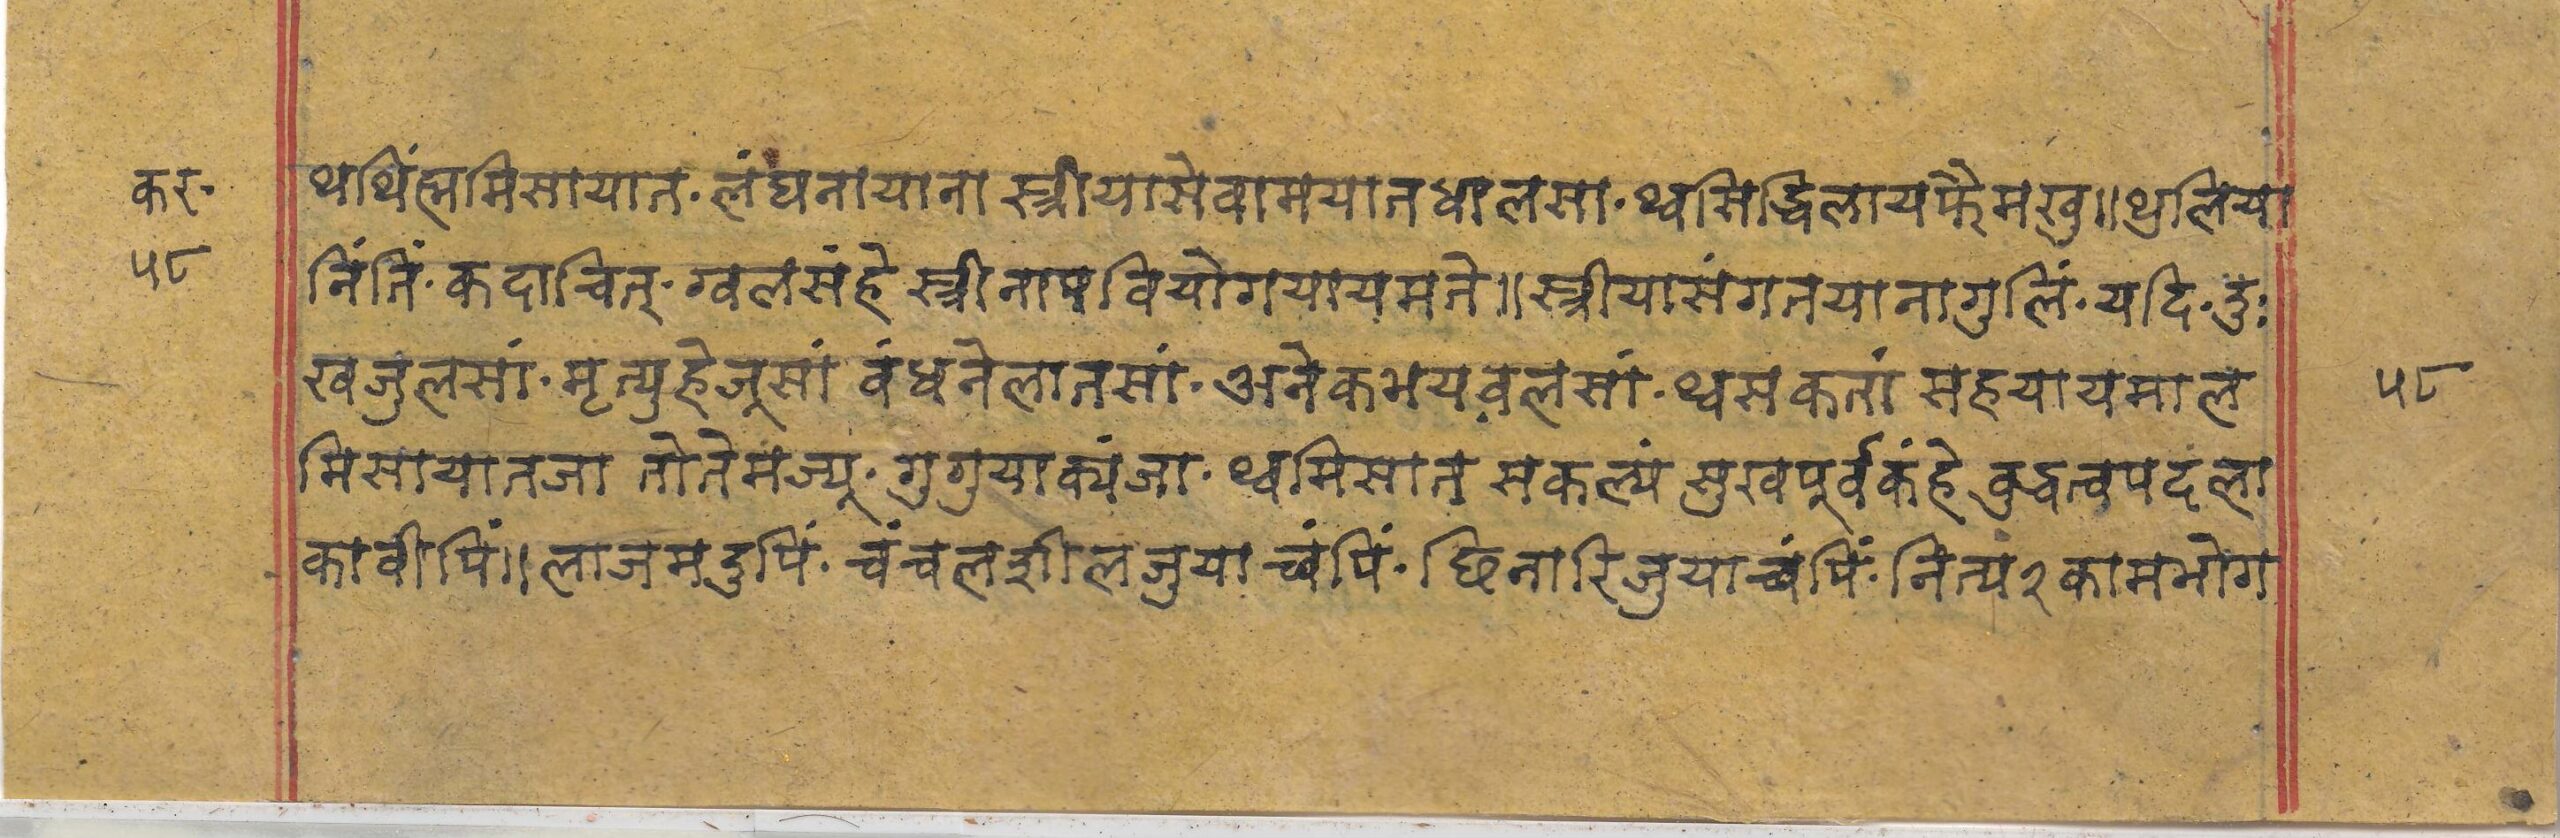 कर॰
५८
थथिंह्ममिसायात॰लंघनायाना स्त्रीयासेवामयातधालसा॰थ्वसिद्धिलायफैमखु॥थुलिया
निंतिं॰कदाचित्॰ग्वलसंहे स्त्रीनापवियोगयायमते॥स्त्रीयासंगतयानागुलिं॰यदि॰दुः
खजुलसां॰मृत्युहेजूसां वंधनेलातसां॰अनेकभयवलसां॰थ्वसकतां सहयायमाल
५८
मिसायातजा तोतेमज्यू॰गुगुयाक्यंजा॰थ्वमिसात सकल्यं सुखपूर्वकंहे वुद्धत्वपदला
कावीपिं॥लाजमदुपिं॰चंचलशीलजुयाच्वंपिं॰छिनारिजुयाच्वंपिं॰नित्य२कामभोग